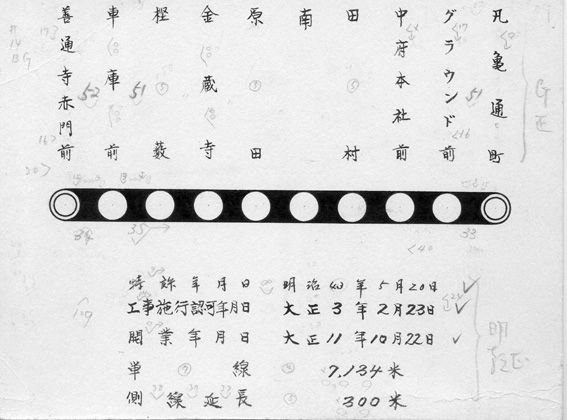 善通寺赤門前
車庫前
樫藪
金蔵寺
原田
南
田村
中府本社前
グラウンド前
丸亀通町
特許年月日 明治40年5月20日
工事施行認可年月日 大正3年2月23日
開業年月日 大正11年10月22日
単線 7,134米
側線延長 300米
34
35
33
52
51
51